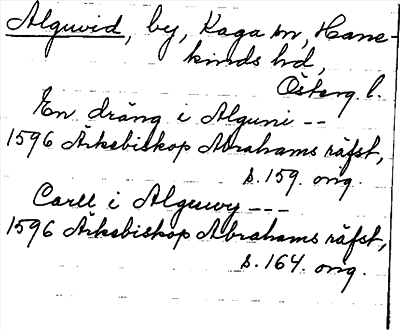 Alguvid, by, Kaga sn, Hane-
kinds hd,
Österg. l.
En dräng i Alguni --
1596 Ärkebiskop Abrahams räfst,
s. 159. orig.
Carll i Alguwy ---
1596 Ärkebiskop Abrahams räfst,
s. 164. orig.